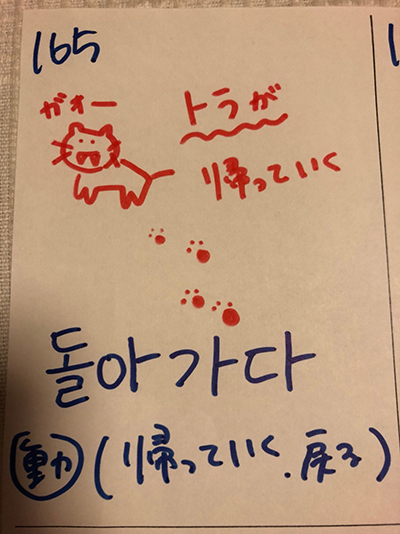 165
ガオー
トラが
帰っていく
돌아가다
動 (帰っていく.戻る)